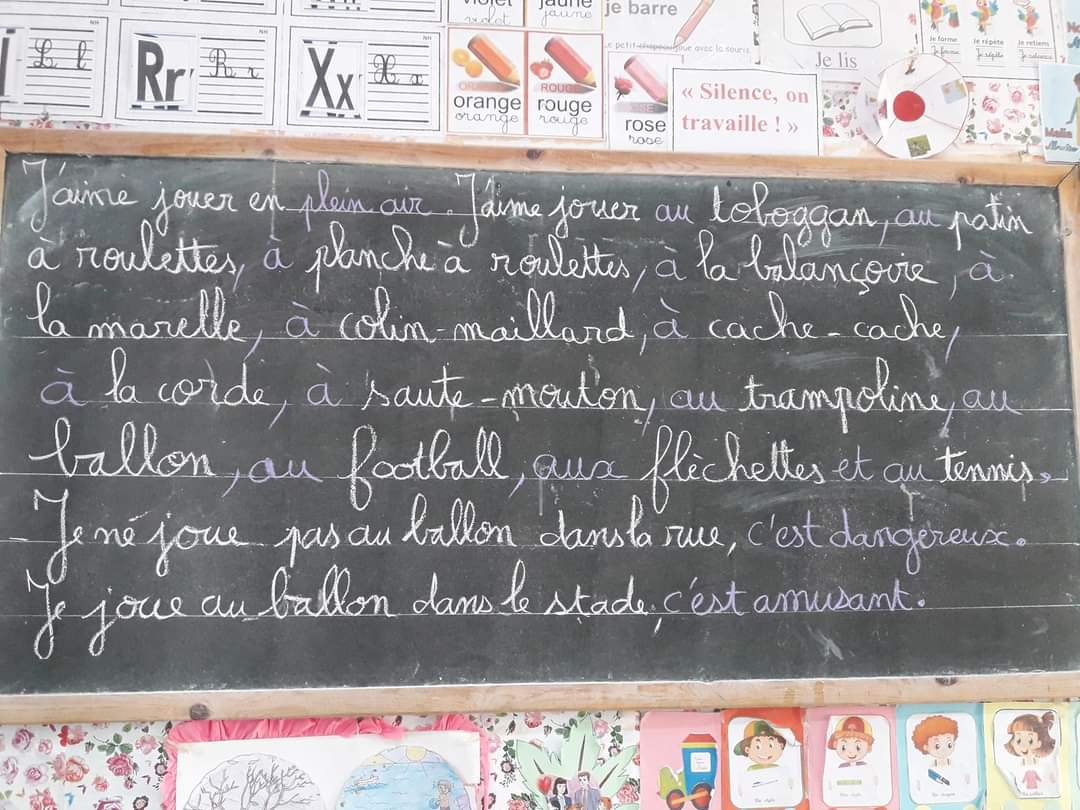 violet
violet
jaune
jaune
je barre
Je lis
Je forme
Je forme
Je répète
Je répète
Je retiens
L l
Rr
R r
Xx
X x
orange
orange
ROUGE
rouge
rouge
rose
rose
« Silence, on
travaille ! »
J'aime jouer en plein air. J'aime jouer au toboggan, au patin
à roulettes, à planche à roulettes, à la balançoire, à
la marelle, à colin-maillard, à cache-cache,
à la corde, à saute-mouton, au trampoline, au
ballon, au football, aux fléchettes et au tennis.
Je ne joue pas au ballon dans la rue, c'est dangereux.
Je joue au ballon dans le stade, c'est amusant.